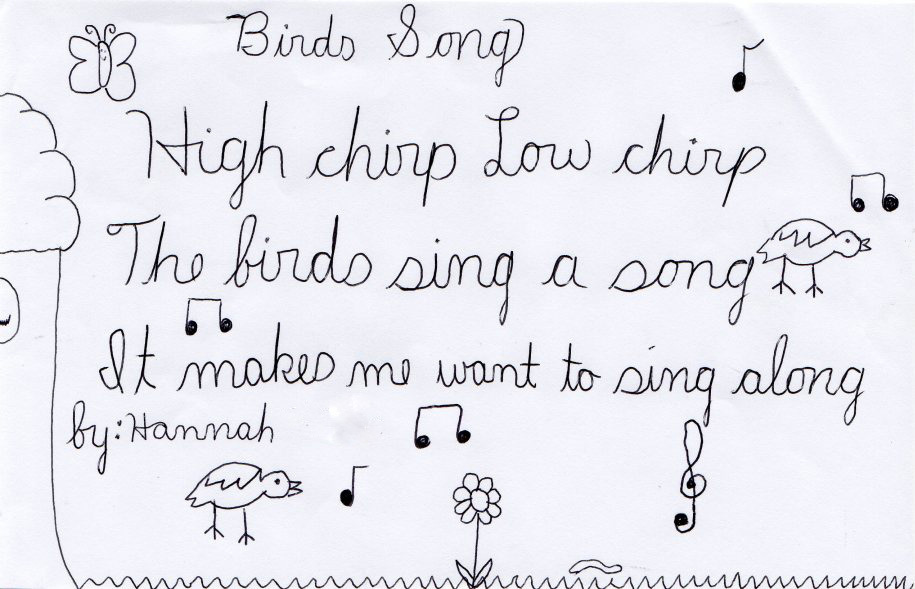 Birds Song
High chirp Low chirp
The birds sing a song
It makes me want to sing along
by: Hannah